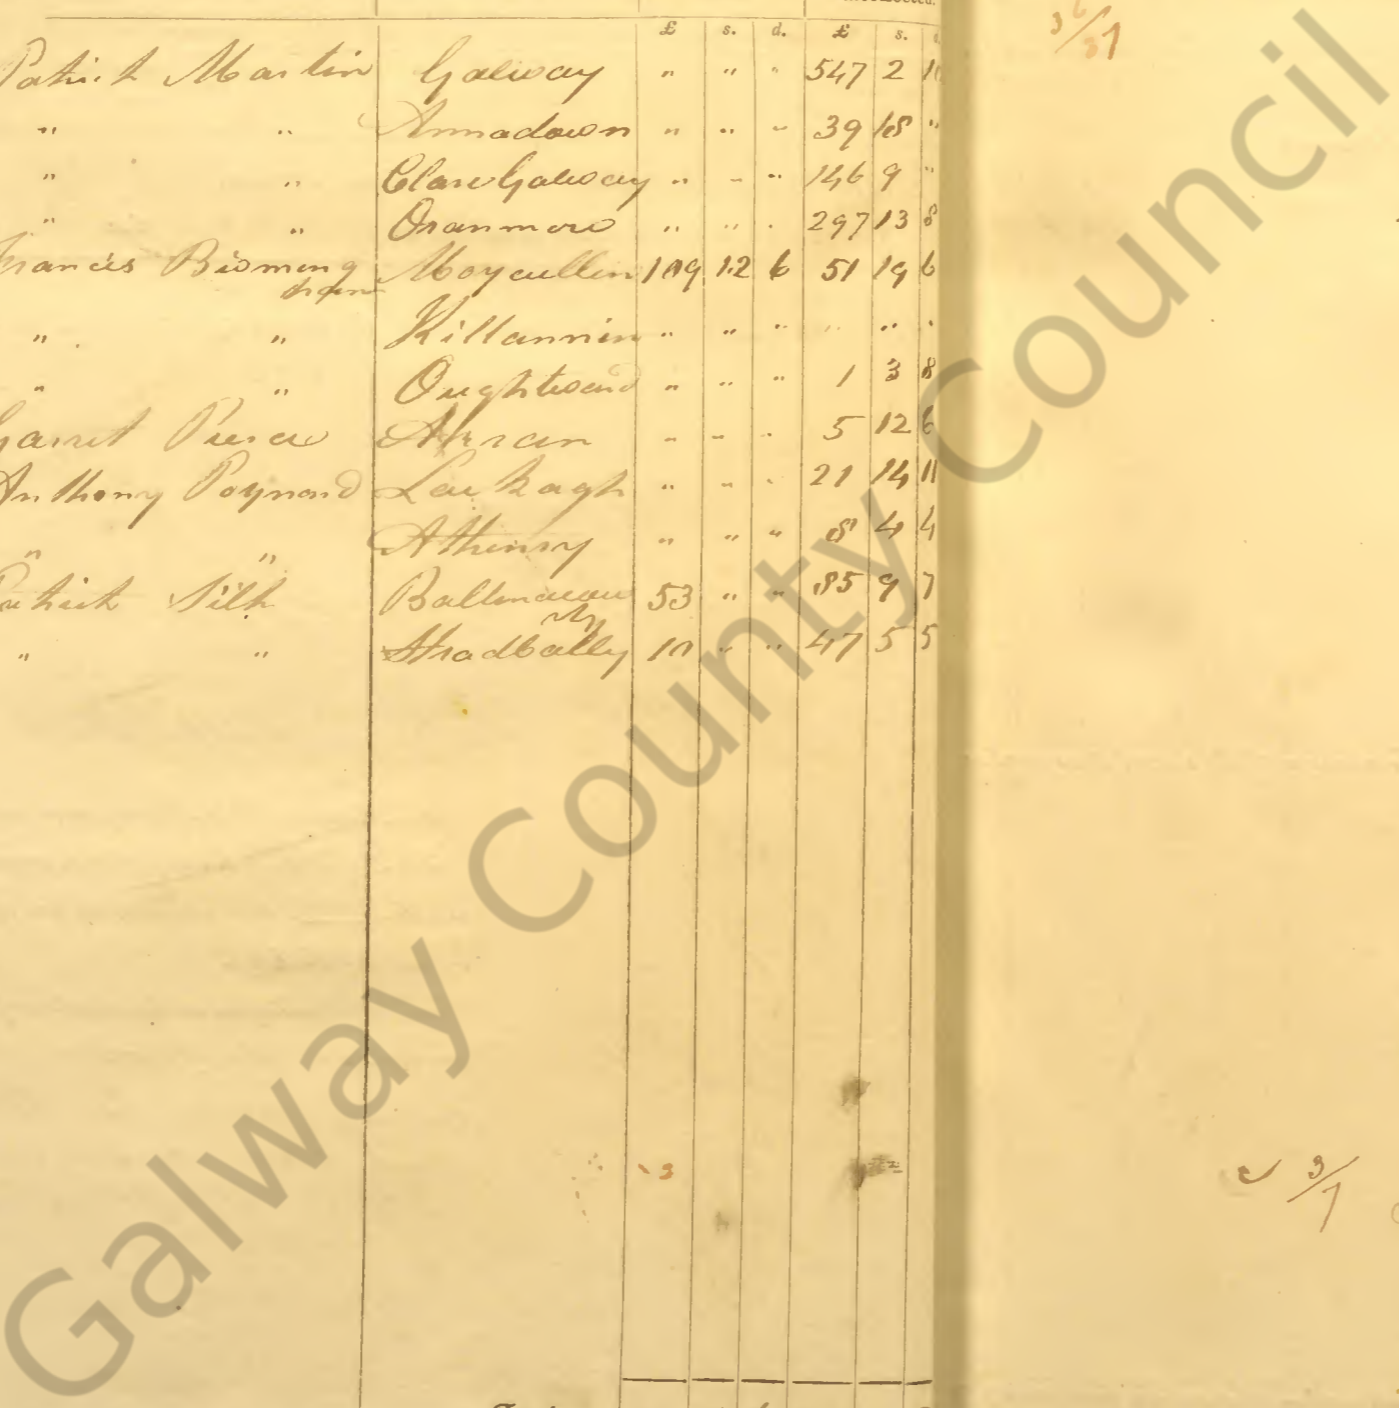 £ s. d. £ s.
Patrick Martin Galway " " " 547 2 10
" " Annadown " " " 39 18 "
" " Clare Galway " " " 146 9 "
" " Oranmore " " " 297 13 8
Francis Birming Moycullen 109 12 6 51 19 6
ham
" " Killannin " " " " " "
" " Oughterard " " " 1 3 8
Garret Pierce Arran " " " 5 12 6
Anthony Poynard Lackagh " " " 21 14 11
" " Athenry " " " 8 4 4
Patrick Silk 53 " " 85 9 7
" " Stradbally 10 " " 47 5 5
3/7
Galway County Council